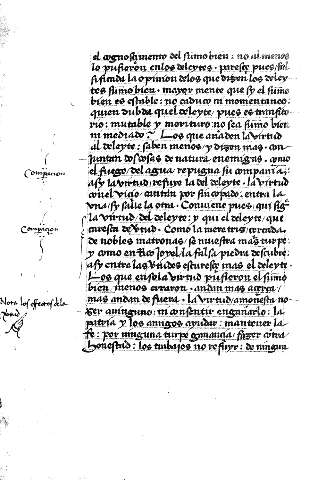 el cognoscimiento del sumo bien: no al menos
lo pusieron enlos deleytes. paresce pues
la opinion delos que dizen los deley
tes sumo bien. mayor mente que sy el sumo
bien es estable: no caduco ni momentaneo:
quien dubda quel deleyte pues es transito
rio: mutable y morituro no sea sumo bien
ni mediado? Los que añaden la virtud
al deleyte: saben menos y dizen mas. con
juntan dos cosas de natura enemigas. como
el fuego del agua repugna su compania:
asy la virtud refuye la del deleyte. la virtud
con el vicio: entra la
una: sy salie la otra. Conviene pues, que
la virtud, del deleyte: y qui el deleyte, que
caresca de virtud. Como la meretris,
de nobles matronas, se muestra mas turpe:
y como en rico joyel la falsa piedra descubre:
asy entre las virtudes escuresce mas el deleyte.
Los que ensola virtud pusieron el sumo
bien menos erraron. andan mas acerca:
mas andan de fuera. La virtud amonesta no
a ninguno: ni consentir engañarlo: la
patria y los amigos ayudar: mantener la
fe: por ninguna turpe ganancia, fazer contra
honestad: los trabajos no refuyr: de ningun
Comparacion
Comparacion
Nota los efectos dela